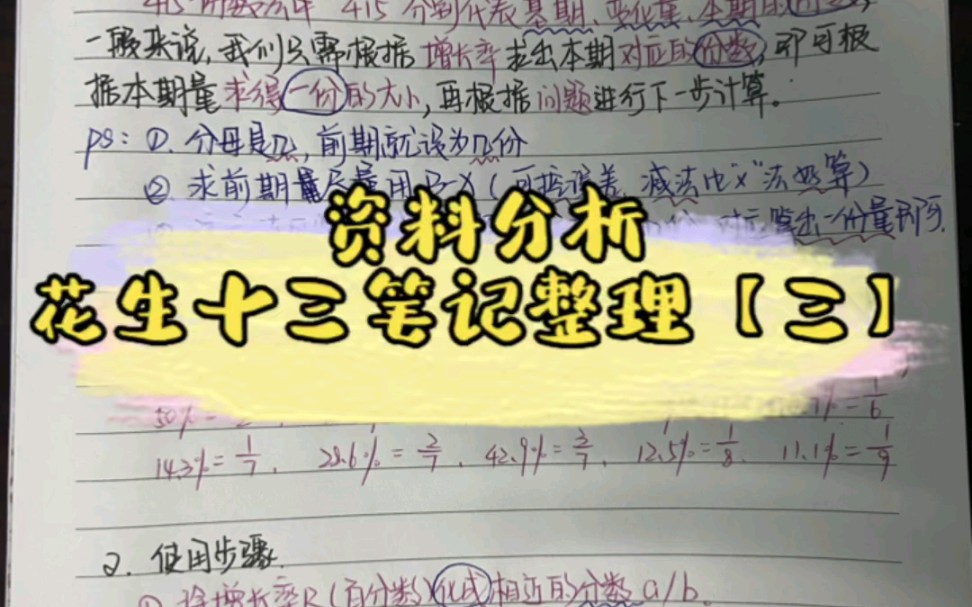 415份数法中 415 分别代表基期、变化量、本期的份数,
一般来说,我们只需根据 增长率 求出本期对应的份数,即可根
据本期量求得一份的大小,再根据问题进行下一步计算。
ps: ①. 分母是几,前期就设为几份
② 求前期量尽量用B-X(
减法比"x"法好算)
算出一份量即可.
资料分析
花生十三笔记整理【三】
50%=
=1/6
14.3%=1/7、 28.6%=2/7、 42.9%=3/7、 12.5%=1/8、 11.1%=1/9
2. 使用步骤
① 将增长率R(百分数)化成相近的分数 a/b。